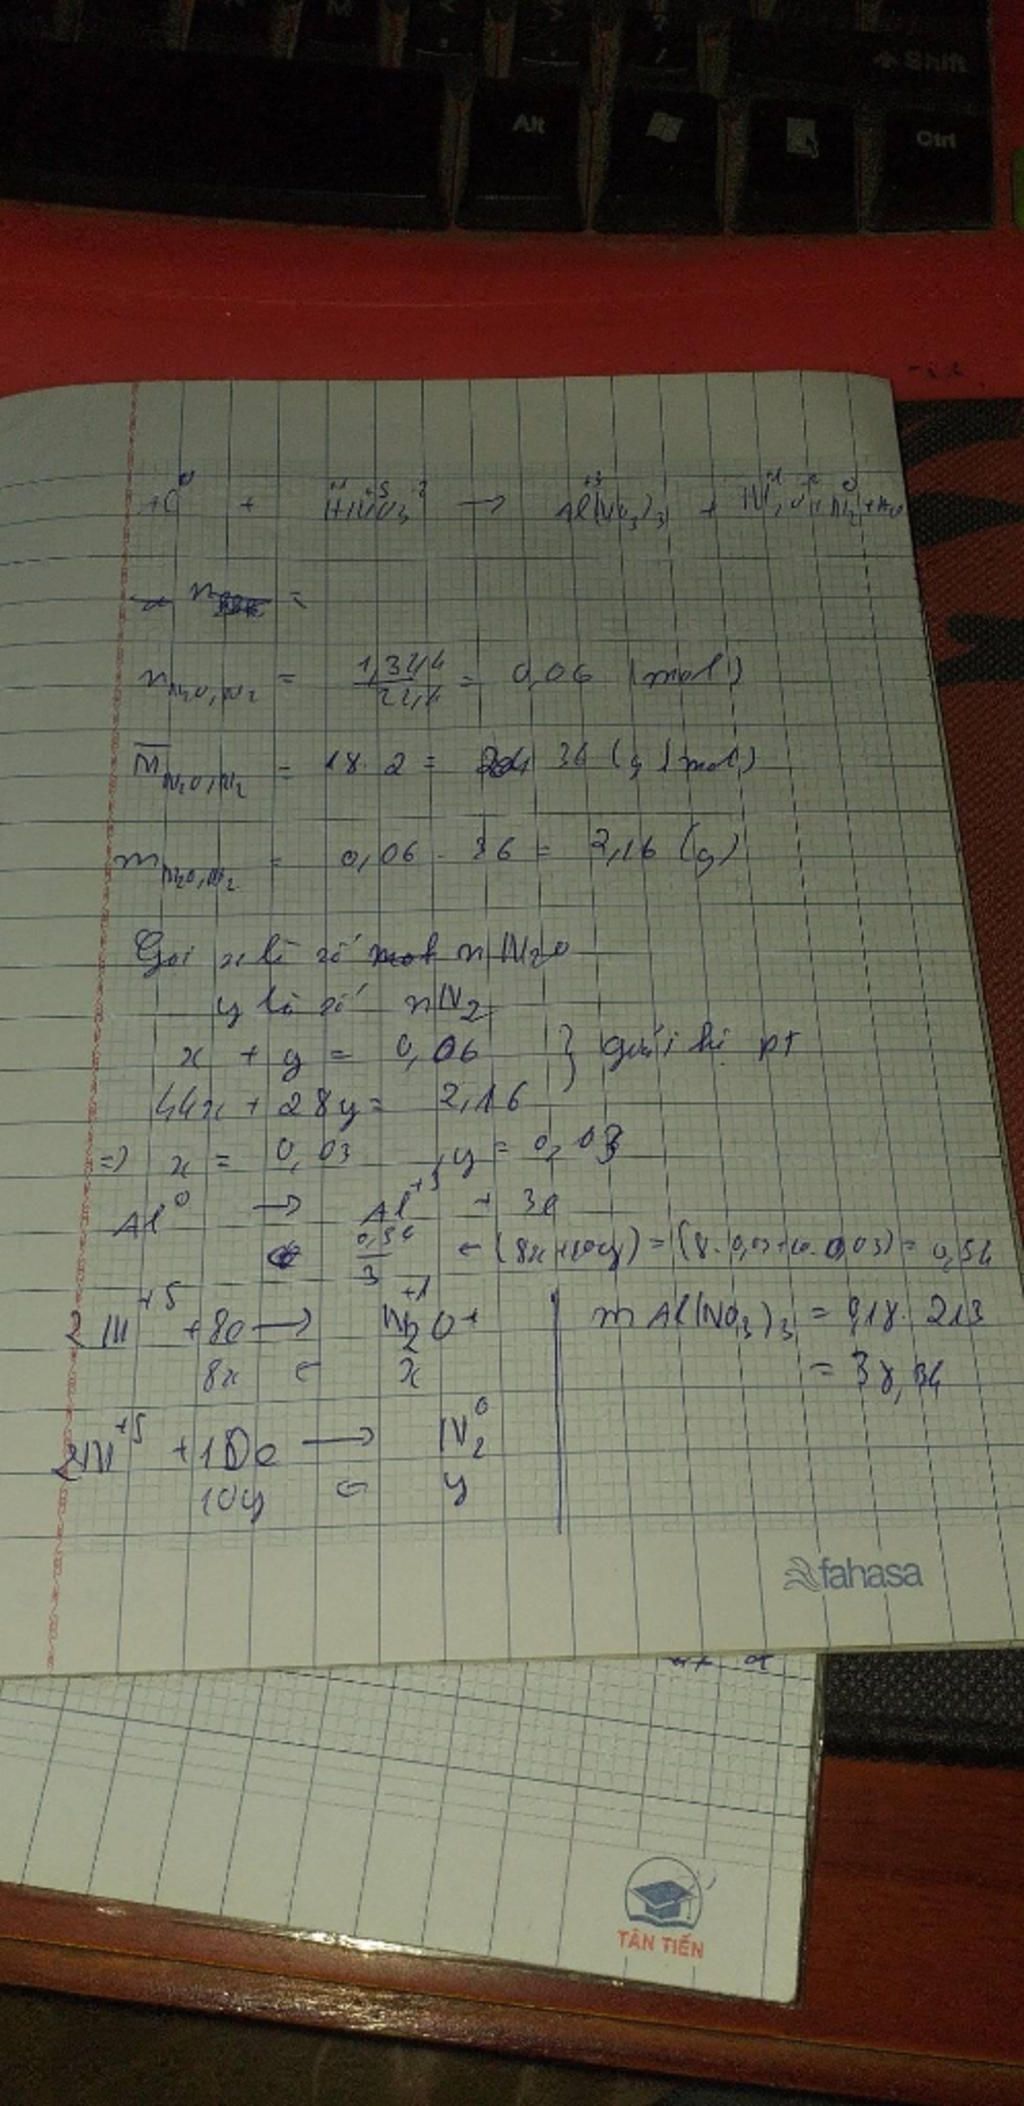 Shift
Alt
Ctrl
Al⁰ + HNO₃ → Al(NO₃)₃ + N₂O, N₂ + H₂O
n =
nN₂O,N₂ = 1,344/22,4 = 0,06 (mol)
M̅N₂O,N₂ = 18.2 = 36 (g/mol)
mN₂O,N₂ = 0,06 . 36 = 2,16 (g)
Gọi x là số n N₂O
y là số nN₂
x + y = 0,06 } giải hệ pt
44x + 28y = 2,16
=> x = 0,03 , y = 0,03
Al⁰ → Al⁺³ + 3e
0,54/3 ← (8x+10y) = (8.0,03+10.0,03) = 0,54
2N⁺⁵ + 8e → N₂⁺¹O
8x ← x
2N⁺⁵ + 10e → N₂⁰
10y ← y
m Al(NO₃)₃ = 0,18 . 213
= 38,34
fahasa
TÂN TIẾN